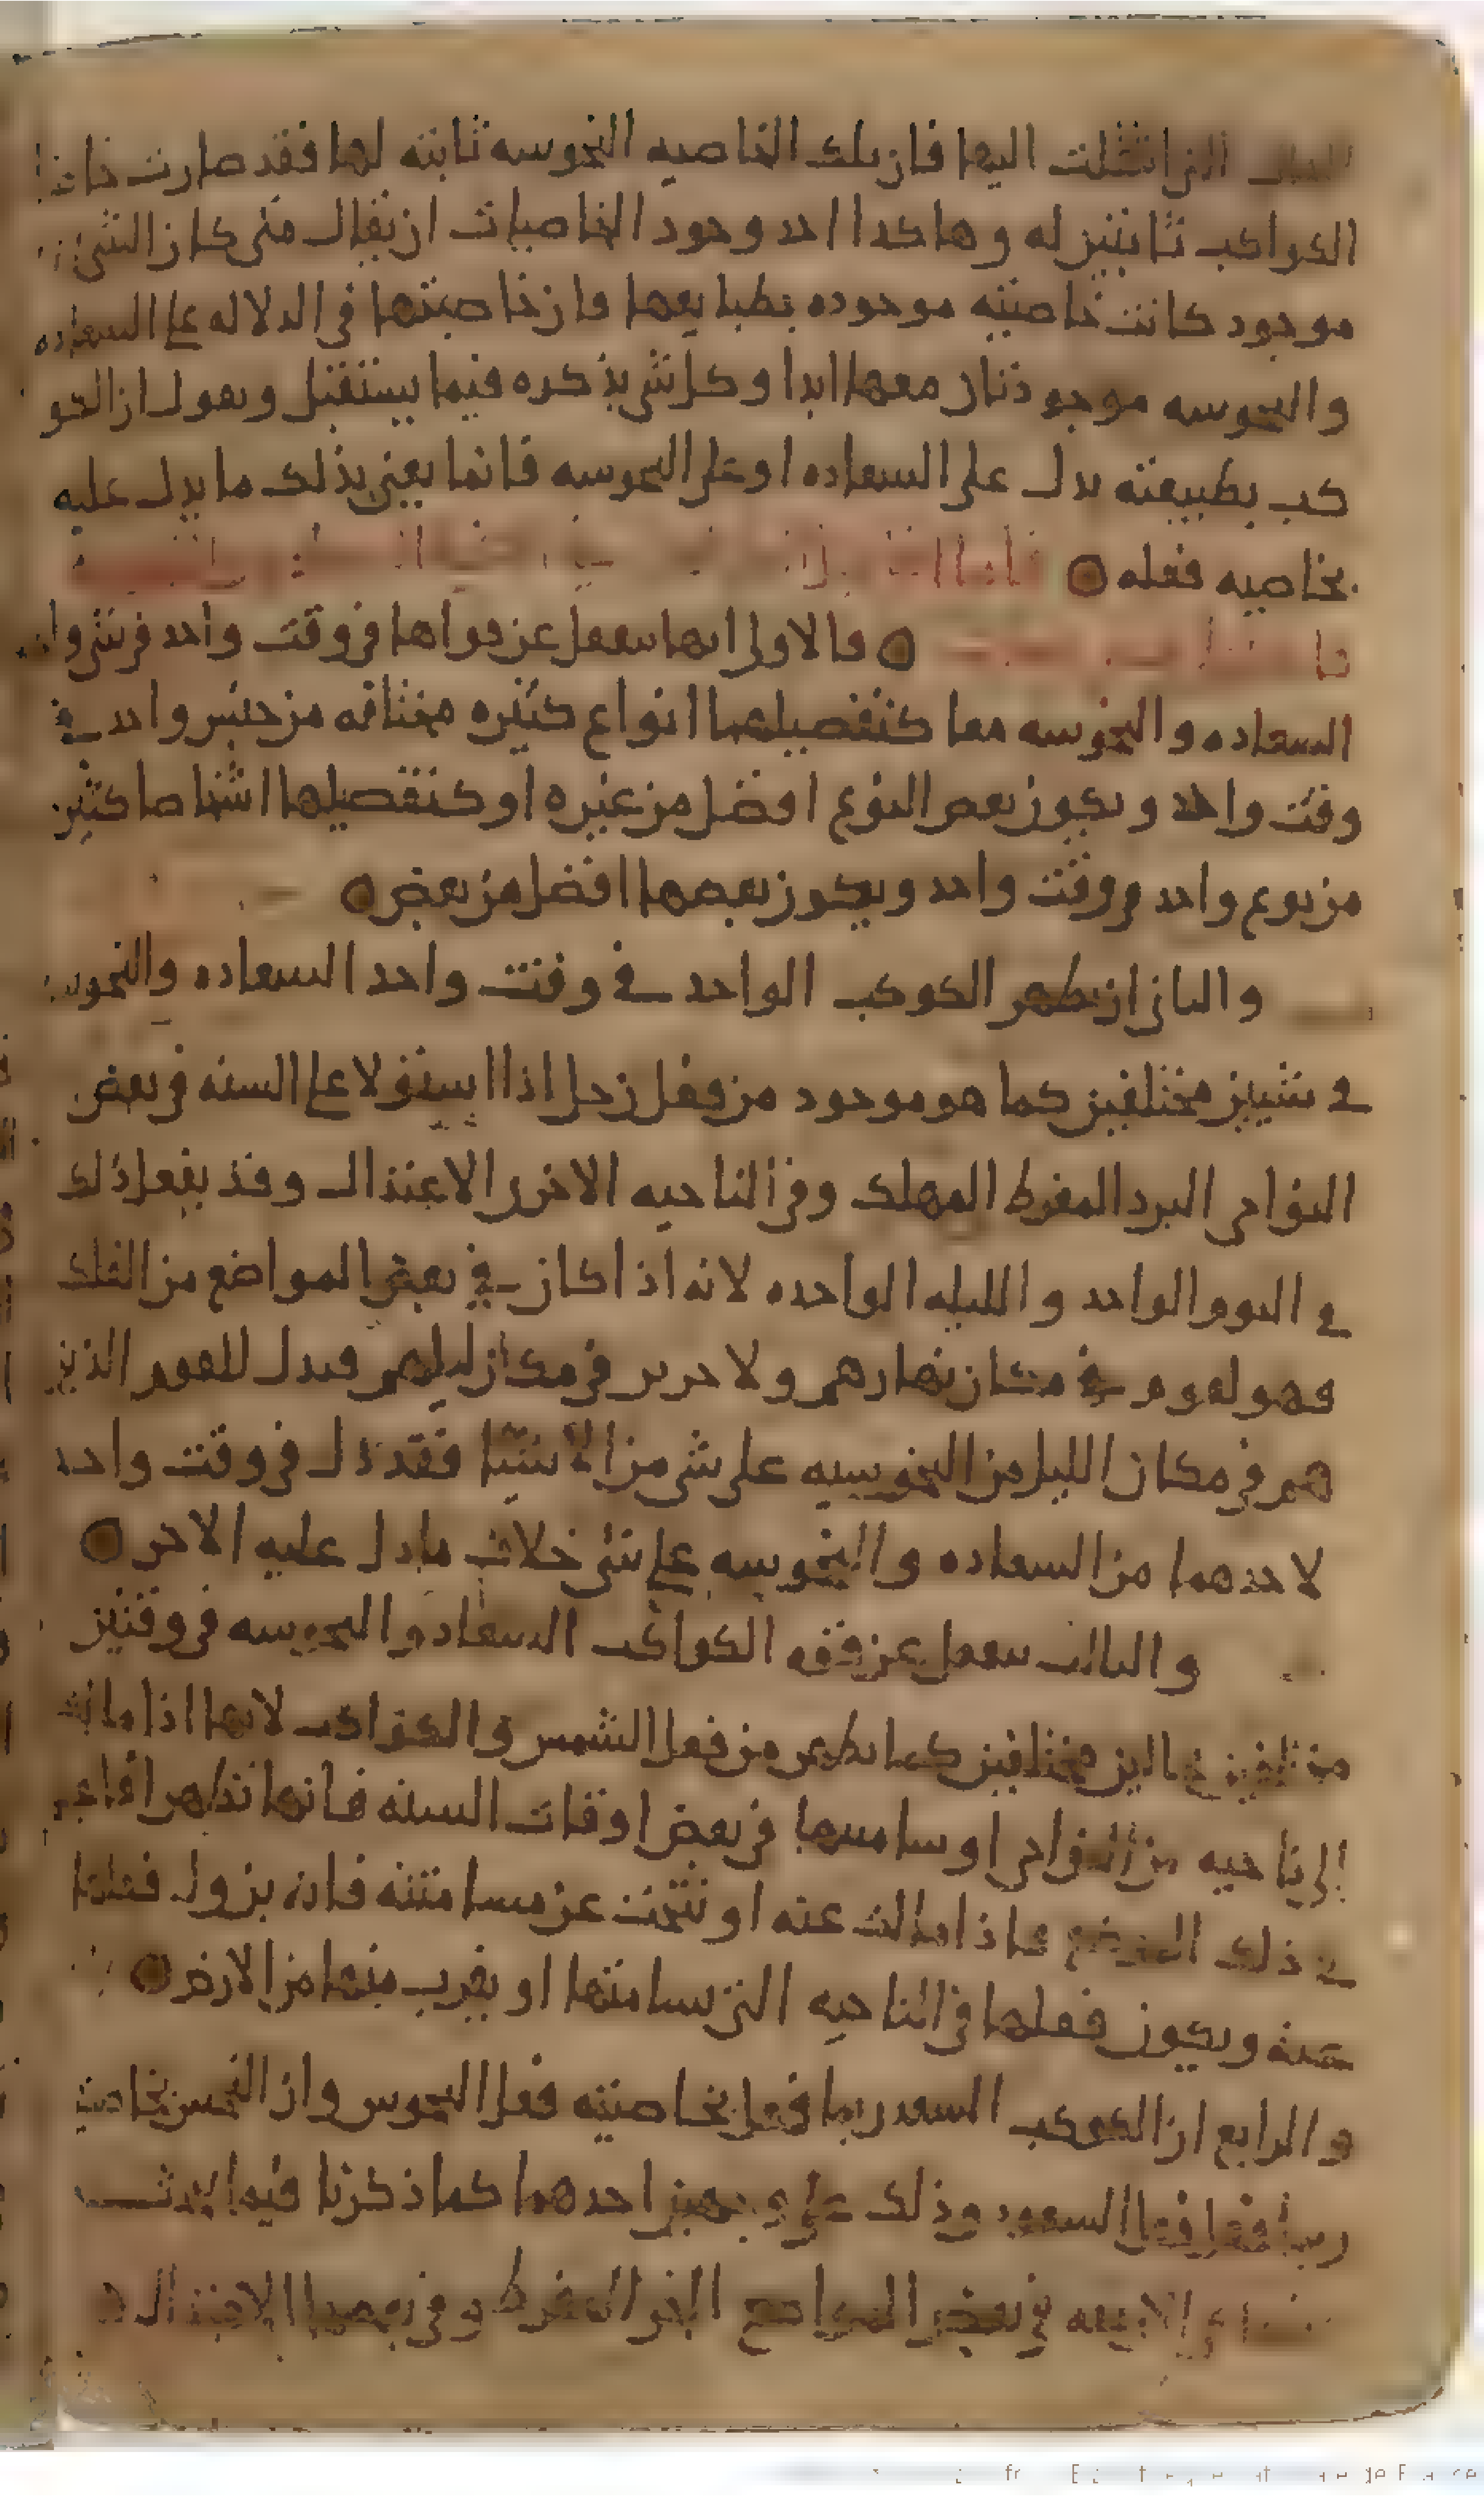 التى انتقلت اليها فان تلك الخاصيه النحوسه ثابته لها فقد صارت
الكواكب ثابتين له وهاكدا احد وجود الخاصيات ان يقال متى كان الشى
موجود كانت خاصيته موجوده بطبايعها وان خاصيتها فى الدلاله على السعاده
والنحوسه موجودتان معها ابدا وكل شى يذكره فيما يستقبل ويقول ان الكو
كب بطبيعته يدل على السعاده او على النحوسه فانما يعنى بذلك ما يدل عليه
بخاصيه فعله
فالاولى انها تفعل عن قواها فى وقت واحد فى شى
السعاده والنحوسه معا كتفصيلهما انواع كثيره مختلفه من جنس واحد فى
وقت واحد ويكون بعض النوع افضل من غيره او كتفصيلها اشخاصا كثير
من نوع واحد فى وقت واحد ويكون بعضها افضل من بعض
والثانى ان يظهر الكوكب الواحد فى وقت واحد السعاده والنحوسه
فى شيين مختلفين كما هو موجود من فعل زحل اذا استولا على السنه فى بعض
النواحى البرد المفرط المهلك وفى الناحيه الاخرى الاعتدال وقد يفعل ذلك
فى اليوم الواحد والليله الواحده لانه اذا كان فى بعض المواضع من الفلك
فهو لقوم فى مكان نهارهم ولاخرين فى مكان ليلهم فيدل للقوم الذين
هم فى مكان الليل من النحوسيه على شى من الاشيا فقد دل فى وقت واحد
لاحدهما من السعاده والنحوسه على شى خلاف ما دل عليه الاخر
والثالث تفعل عن قوه الكواكب السعاده والنحوسه فى وقتين
مختلفين حالين مختلفين كما يظهر من فعل الشمس والكواكب لانها اذا مالت
الى ناحيه من النواحى او سامتتها فى بعض اوقات السنه فانها تظهر افاعيل
فى ذلك الموضع فاذا مالت عنه او تنحت عن مسامتته فانه يزول فعلها
عنه ويكون فعلها فى الناحيه التى تسامتها او يقرب منها من الارض
والرابع ان الكوكب السعد ربما فعل بخاصيته فعل النحوس وان النحس بخاصيته
ربما فعل فعل السعود وذلك على وجهين احدهما كما ذكرنا فيما يحدث
فى بعض المواضع الحر المفرط وفى بعضها الاعتدال